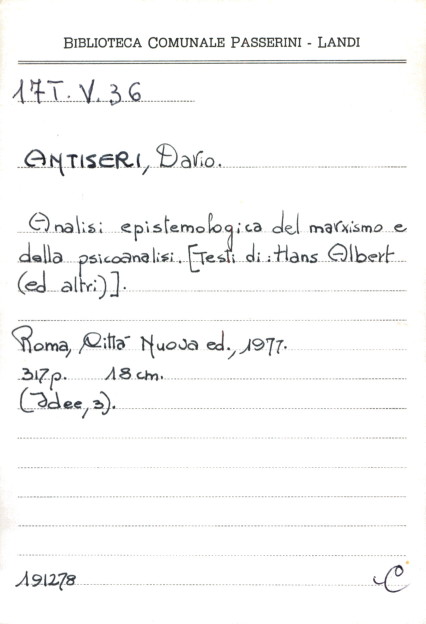 BIBLIOTECA COMUNALE PASSERINI - LANDI
17T. V. 36
ANTISERI, Dario.
Analisi epistemologica del marxismo e
della psicoanalisi. [Testi di: Hans Albert
(ed altri)].
Roma, Città Nuova ed., 1977.
317 p. 18 cm.
(Idee, 3).
191278